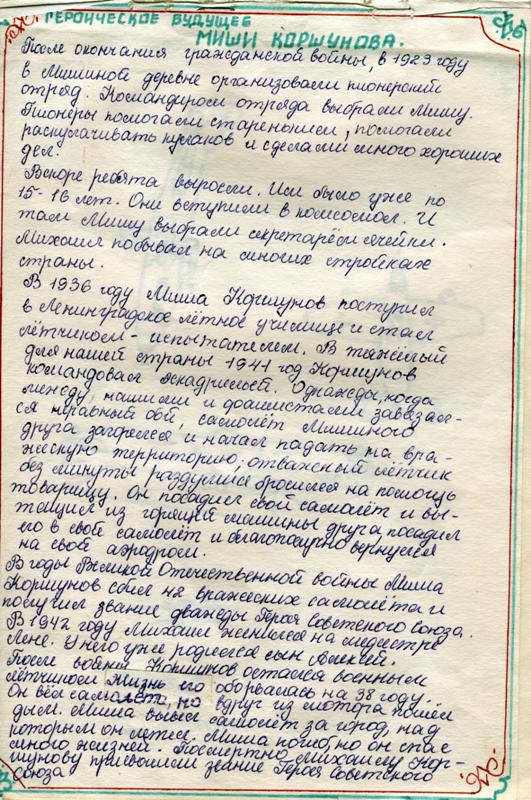 ГЕРОИЧЕСКОЕ БУДУЩЕЕ
МИШИ КОРШУНОВА.
После окончания гражданской войны, в 1923 году
в Мишиной деревне организовали пионерский
отряд. Командиром отряда выбрали Мишу.
Пионеры помогали стареньким, помогали
раскулачивать кулаков и сделали много хороших
дел.
Вскоре ребята выросли. Им было уже по
15-16 лет. Они вступили в комсомол. И
там Мишу выбрали секретарём ячейки.
Михаил побывал на многих стройках
страны.
В 1936 году Миша Коршунов поступил
в Ленинградское лётное училище и стал
лётчиком-испытателем. В тяжёлый
для нашей страны 1941 год Коршунов
командовал эскадрильей. Однажды, когда
между нашими и фашистами завязал-
ся неравный бой, самолёт Мишиного
друга загорелся и начал падать на вра-
жескую территорию, отважный лётчик
без минуты раздумия бросился на помощь
товарищу. Он посадил свой самолёт и вы-
тащил из горящей машины друга, посадил
его в свой самолёт и благополучно вернулся
на свой аэродром.
В годы Великой Отечественной войны Миша
Коршунов сбил 42 вражеских самолёта и
получил звание дважды Героя Советского Союза.
В 1942 году Михаил женился на медсестре
Лене. У него уже родился сын Алексей.
После войны Коршунов остался военным
лётчиком жизнь его оборвалась на 38 году.
Он вёл самолёт, но вдруг из мотора пошёл
дым. Миша вывел самолёт за город, над
которым он летел. Миша погиб, но он спас
много жизней. Посмертно Михаилу Кор-
шунову присвоили звание Героя Советского
Союза